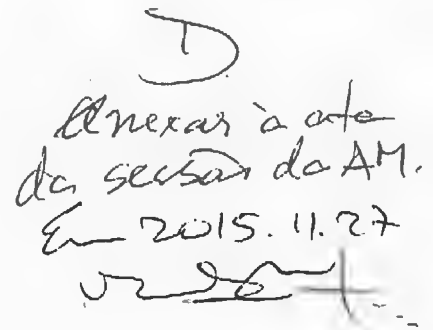 D
Anexar à ata
da sessão da AM.
Em 2015.11.27